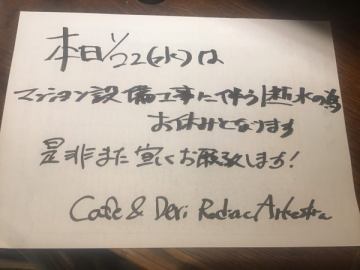 本日1/22(水)は
マンション設備工事に伴う断水の為
お休みとなります
是非また宜しくお願い致します!
Cafe & Deri Rodiac Arkestra